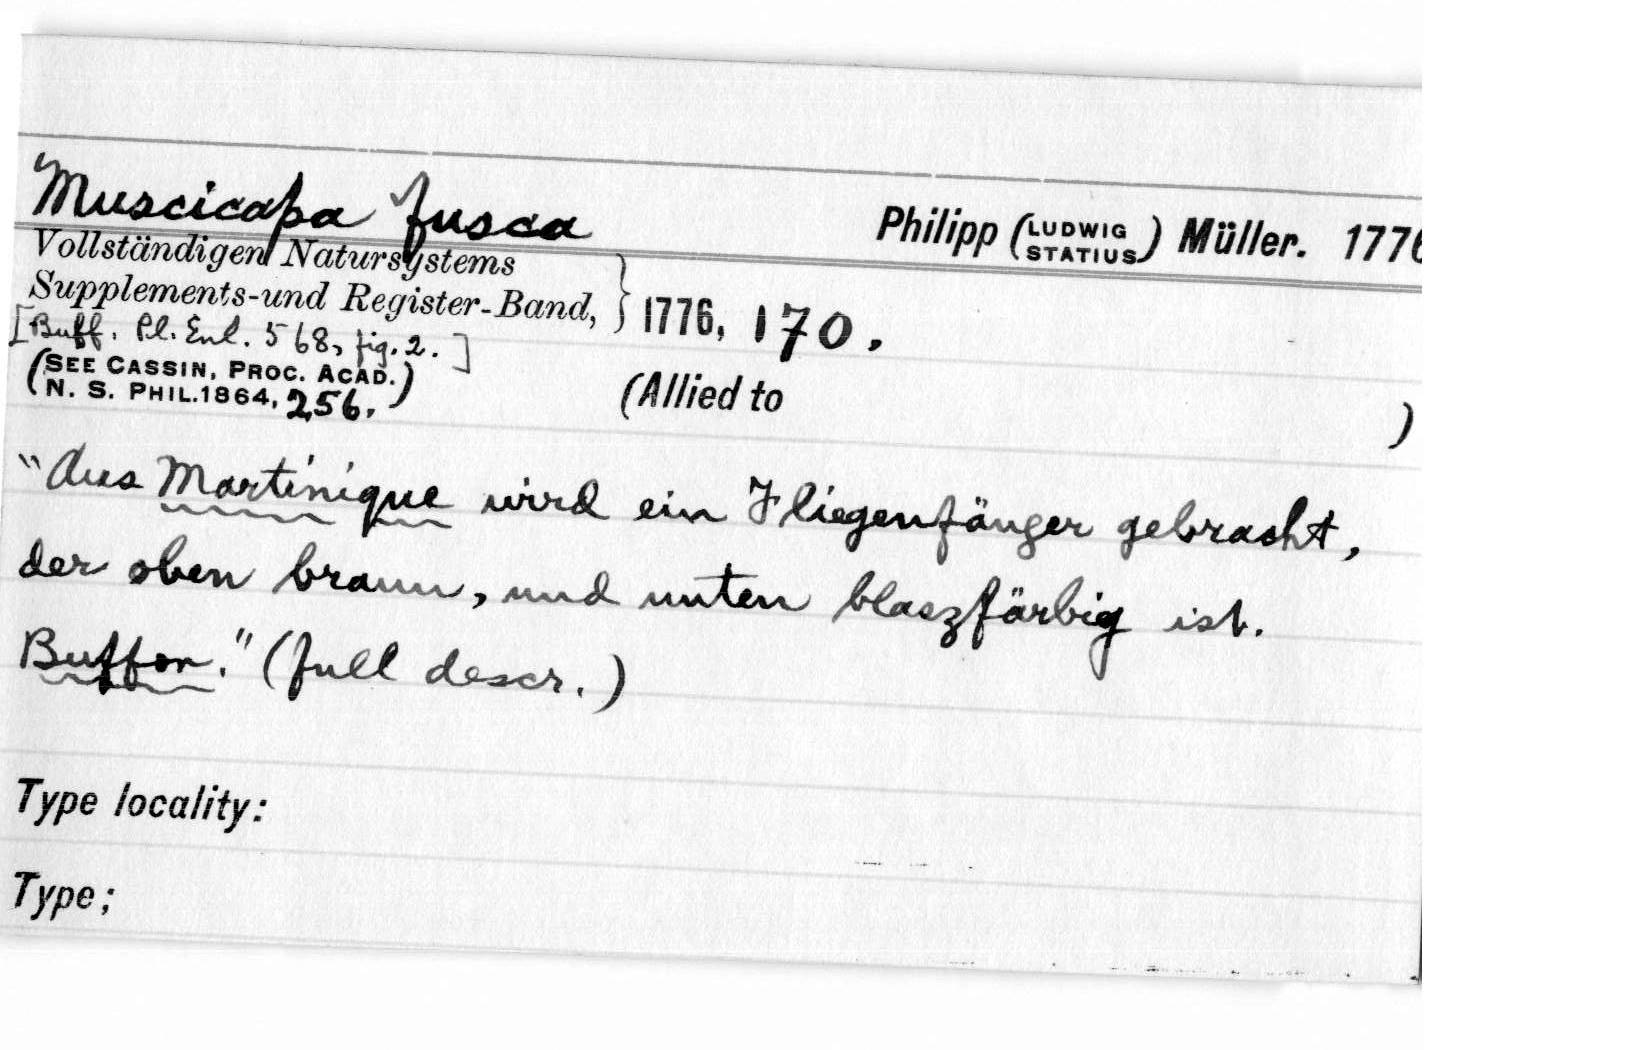 Muscicapa fusca
Philipp (LUDWIG STATIUS) Müller. 1776
Vollständigen Natursystems
Supplements-und Register-Band, } 1776, 170.
[Buff. Pl. Enl. 568, fig. 2.]
(SEE CASSIN, PROC. ACAD.
N. S. PHIL. 1864, 256.)
(Allied to )
"Aus Martinique wird ein Fliegenfänger gebracht,
der oben braun, und unten blaszfärbig ist.
Buffon." (full descr.)
Type locality:
Type;